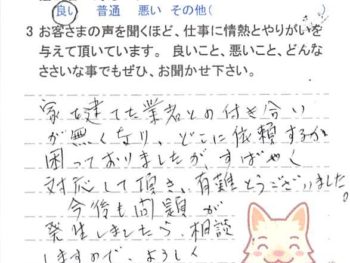 良い 普通 悪い その他(　　　)
3 お客さまの声を聞くほど、仕事に情熱とやりがいを
与えて頂いています。 良いこと、悪いこと、どんな
ささいな事でもぜひ、お聞かせ下さい。
家を建てた業者との付き合い
が無くなり、どこに依頼するか
困っておりましたが、すばやく
対応して頂き、有難とうございました。
今後も問題が
発生しましたら、相談
しますので、よろしく